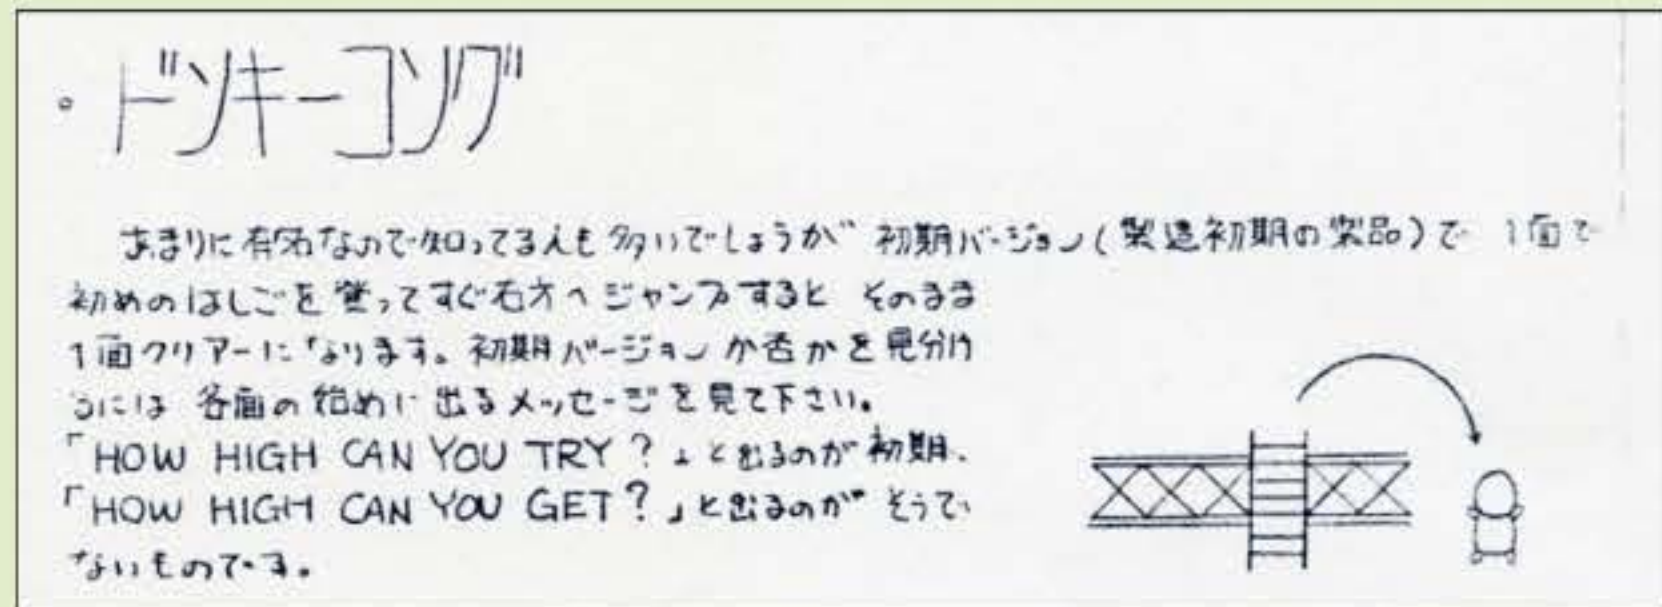 。ドンキーコング
あまりに有名なので知ってる人も多いでしょうが 初期バージョン(製造初期の製品)で 1面で
初めのはしごを登ってすぐ右方へジャンプすると そのまま
1面クリアーになります。初期バージョンか否かを見分け
るには 各面の始めに出るメッセージを見て下さい。
「HOW HIGH CAN YOU TRY?」と出るのが初期、
「HOW HIGH CAN YOU GET?」と出るのが そうで
ないものです。